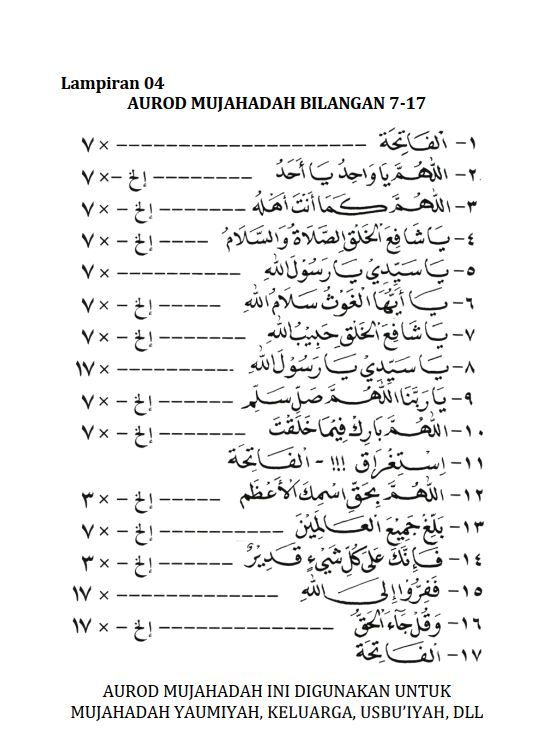 Lampiran 04
AUROD MUJAHADAH BILANGAN 7-17
١- اَلْفَاتِحَة ---------------------- × ٧
٢- اَللّٰهُمَّ يَا وَاحِدُ يَا أَحَدُ --------- إلخ -× ٧
٣- اَللّٰهُمَّ كَمَا أَنْتَ أَهْلُهُ ------- إلخ - × ٧
٤- يَا شَافِعَ الْخَلْقِ الصَّلَاةُ وَالسَّلَامُ ---- إلخ - × ٧
٥- يَا سَيِّدِيْ يَا رَسُوْلَ اللهِ ----------- × ٧
٦- يَا أَيُّهَا الْغَوْثُ سَلَامُ اللهِ ------ إلخ - × ٧
٧- يَا شَافِعَ الْخَلْقِ حَبِيْبَ اللهِ ------- إلخ - × ٧
٨- يَا سَيِّدِيْ يَا رَسُوْلَ اللهِ ------------ × ١٧
٩- يَا رَبَّنَا اللّٰهُمَّ صَلِّ سَلِّمْ ------- إلخ - × ٧
١٠- اَللّٰهُمَّ بَارِكْ فِيْمَا خَلَقْتَ ------- إلخ - × ٧
١١- اِسْتِغْرَاقْ !!! - اَلْفَاتِحَة
١٢- اَللّٰهُمَّ بِحَقِّ اسْمِكَ الْأَعْظَمِ ------ إلخ - × ٣
١٣- بَلِّغْ جَمِيْعَ الْعَالَمِيْنَ ----------- إلخ - × ٧
١٤- فَإِنَّكَ عَلَى كُلِّ شَيْءٍ قَدِيْرٌ ------- إلخ - × ٣
١٥- فَفِرُّوْا إِلَى اللهِ ----------------- × ١٧
١٦- وَقُلْ جَآءَ الْحَقُّ --------------- إلخ - × ١٧
١٧- اَلْفَاتِحَة
AUROD MUJAHADAH INI DIGUNAKAN UNTUK
MUJAHADAH YAUMIYAH, KELUARGA, USBU’IYAH, DLL